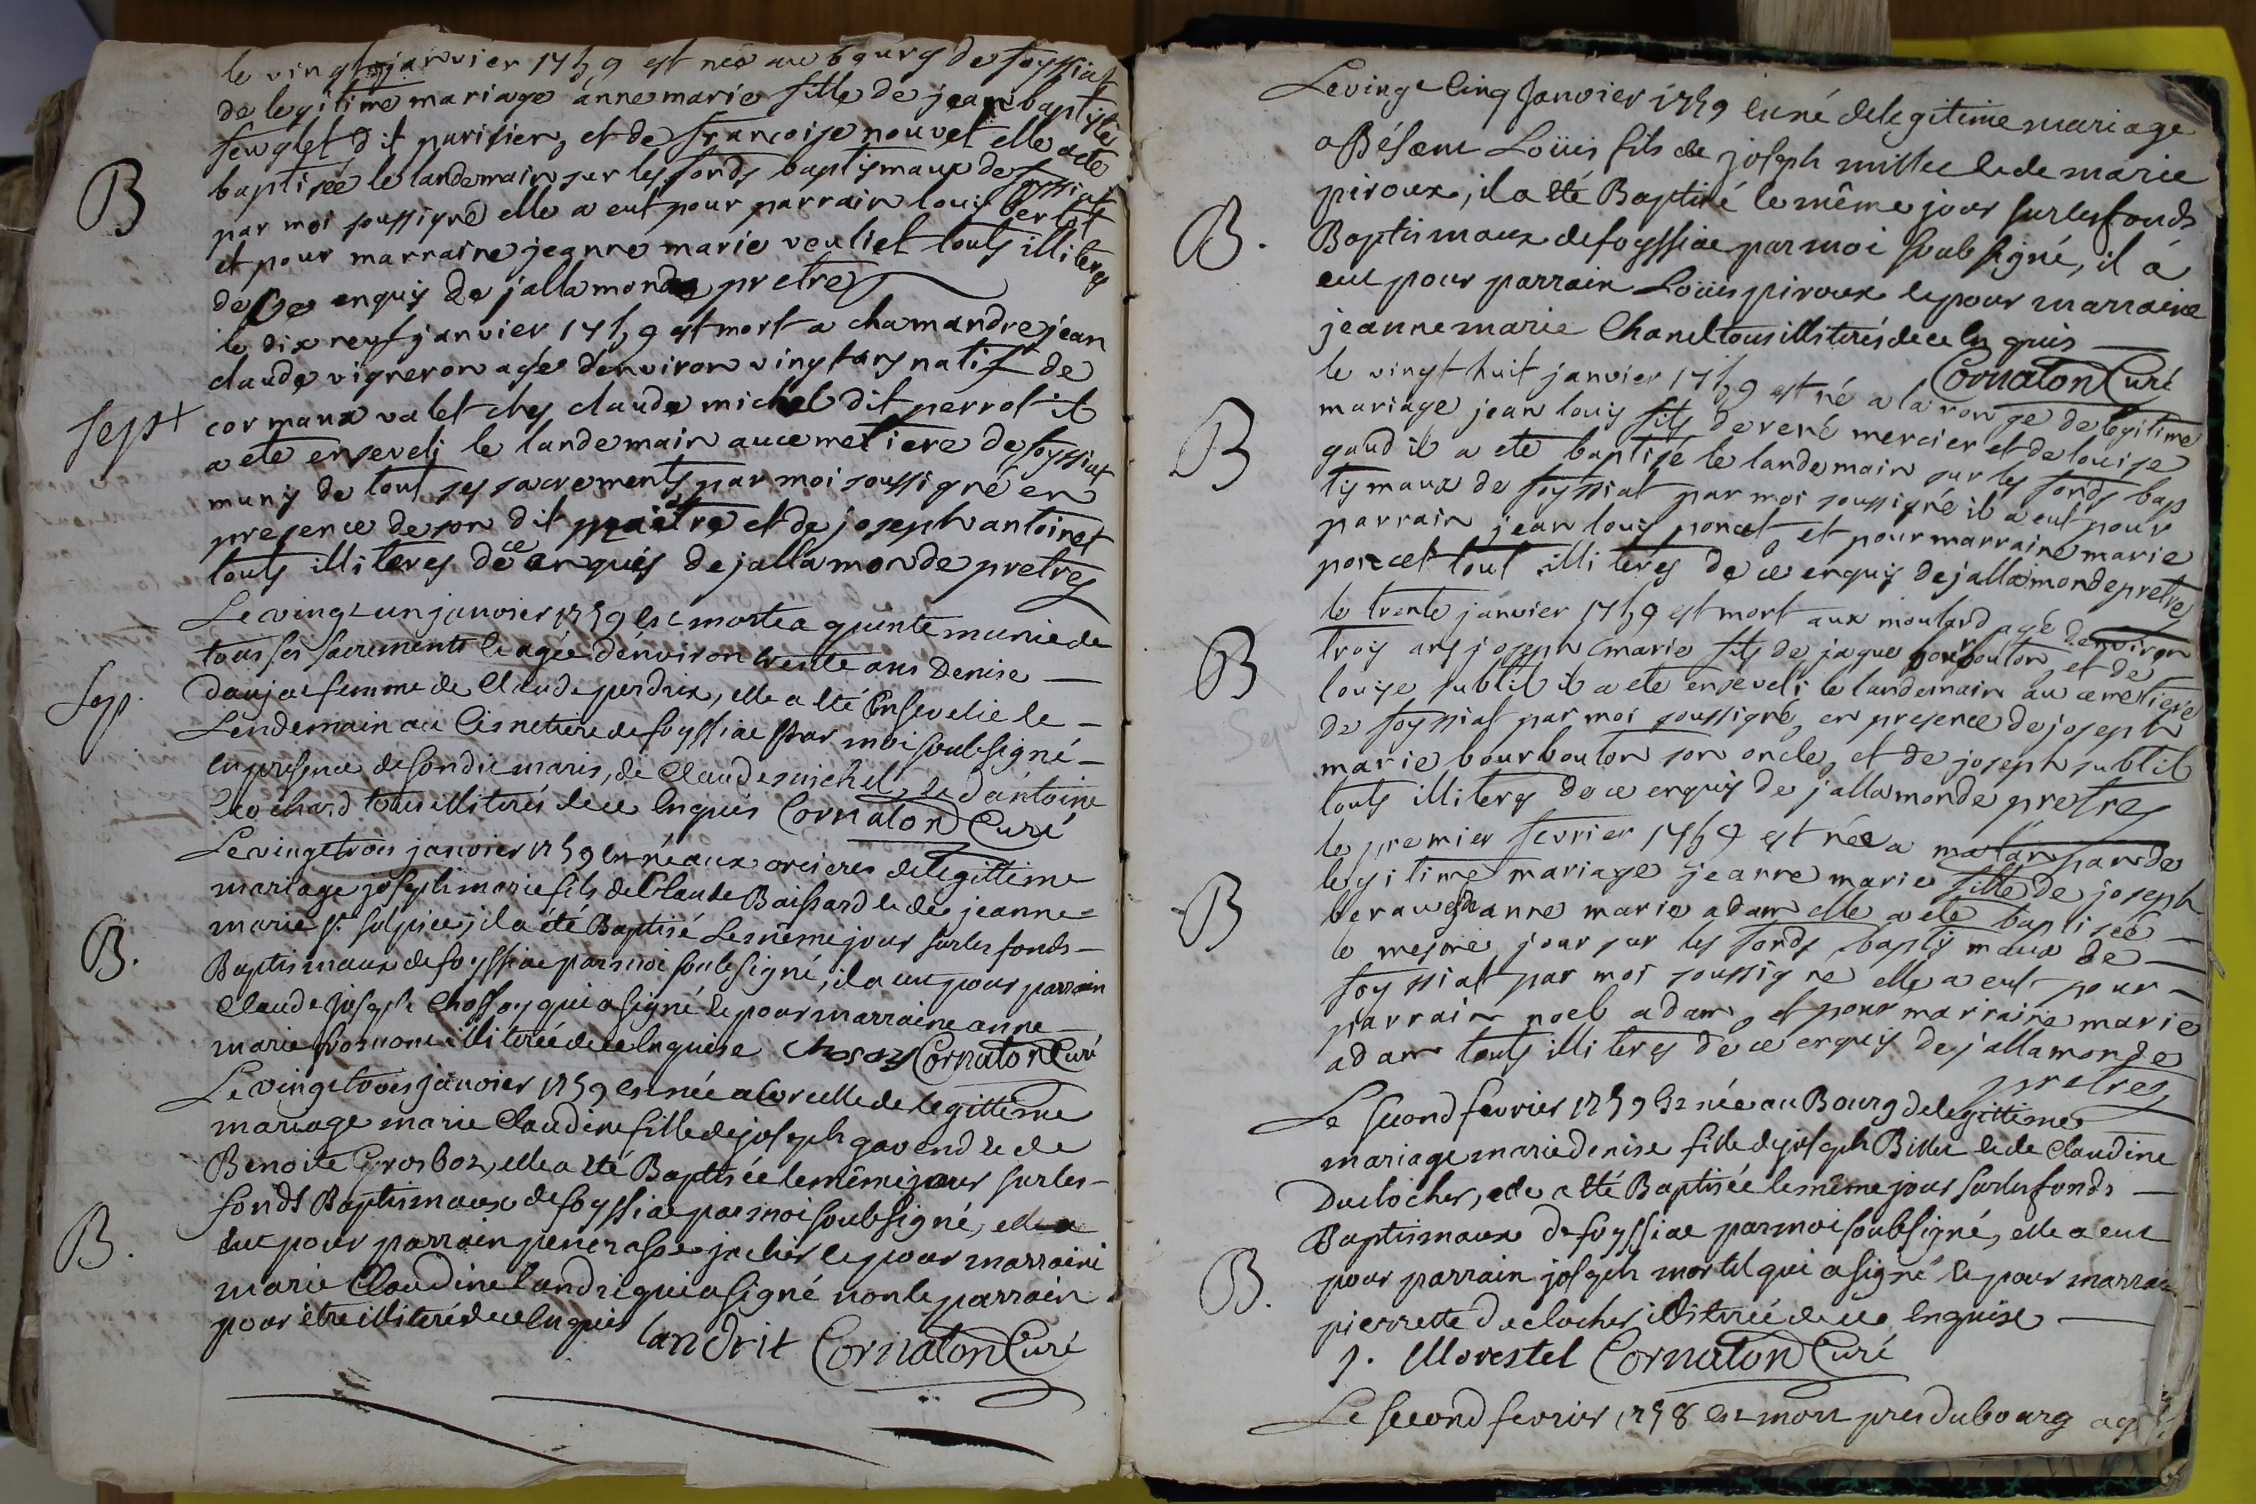 le vingt janvier 1759 est née au bourg de foyssiat
de legitime mariage anne marie fille de jean baptiste
feuglet dit parisien, et de francoise nouvet elle a ete
baptisée le landemain sur les fonds baptismaux de foyssiat
B
par moi soussigné elle a eut pour parrain louis berlet
et pour marraine jeanne marie veuliet touts illiteres
de ce enquis de jallamonde pretre
le dix neuf janvier 1759 est mort a chamandre jean
claude vigneron agé d'environ vingt ans natif de
cormaux valet ches claude michel dit perrot il
Sept
a ete enseveli le landemain au cemetiere de foyssiat
munis de tout ses sacrements par moi soussigné en
presence de son dit maitre et de joseph antoinet
touts illiteres de ce enquis de jallamonde pretre
Le vingt un janvier 1759 est morte a quinte munie de
tous ses sacrements et agée d'environ trente ans Denise
Sep.
Daujat femme de Claude perdrix, elle a été Ensevelie le
Lendemain au Cimetiere de foyssiat par moi soubsigné
en presence de son dit maris, de Claude michel, et d'antoine
Cochard tous illiterés de ce Enquis Cornaton Curé
Le vingt trois janvier 1759 est né aux orcieres de legittime
mariage joseph marie fils de Claude Baissard et de jeanne
marie st sulpice, il a été Baptisé Le même jour sur les fonds
B.
Baptismaux de foyssiat par moi soubsigné, il a eut pour parrain
Claude joseph Chossoy qui a signé et pour marraine anne
marie illiterée de ce Enquise Chosoy Cornaton Curé
Le vingt trois janvier 1759 est née a Corcelle de legittime
mariage marie Claudine fille de joseph gavend et de
Benoite Grosboz, elle a été Baptisée le même jour sur les
fonds Baptismaux de foyssiat par moi soubsigné, elle a
B.
eut pour parrain jacher et pour marraine
marie Claudine landri qui a signé non le parrain
pour être illiteré de ce Enquis landrit Cornaton Curé
Le vingt Cinq Janvier 1759 est né de legitime mariage
a Bésem Loüis fils de joseph millet et de marie
piroux, il a été Baptisé le même jour sur les fonds
B.
Baptismaux de foyssiat par moi soubsigné, il a
eut pour parrain Loüis piroux et pour marraine
jeanne marie Chanel tous illiterés de ce Enquis
Cornaton Curé
le vingt huit janvier 1759 est né a la ronge de legitime
mariage jean louis fils de rené mercier et de louise
B
gaud il a ete baptisé le landemain sur les fonds bap
tismaux de foyssiat par moi soussigné il a eut pour
parrain jean louis poncet et pour marraine marie
poncet tout illiteres de ce enquis de jallamonde pretre
le trente janvier 1759 est mort aux moulard agé d'environ
trois ans joseph marie fils de jaque bourbouton, et de
B
louise subtil il a ete enseveli le landemain au cemetiere
Sepul
de foyssiat par moi soussigné, en presence de joseph
marie bourbouton son oncle, et de joseph subtil
touts illiteres de ce enquis de jallamonde pretre
le premier fevrier 1759 est née a malaparde
legitime mariage jeanne marie fille de joseph
B
beraud anne marie adam elle a ete baptisée
le mesme jour sur les fonds baptismaux de
foyssiat par moi soussigné elle a eut pour
parrain noel adam, et pour marraine marie
adam touts illiteres de ce enquis de jallamonde
pretre
Le second fevrier 1759 Est née au Bourg de legittime
mariage marie denise fille de joseph Billet et de Claudine
Duclocher, elle a été Baptisée le même jour sur les fonds
Baptismaux de foyssiat par moi soubsigné, elle a eut
B.
pour parrain joseph mortel qui a signé et pour marraine
pierrette duclocher illiterée de ce Enquise
J. Morestel Cornaton Curé
Le second fevrier 1758 Est mort pres du bourg ag